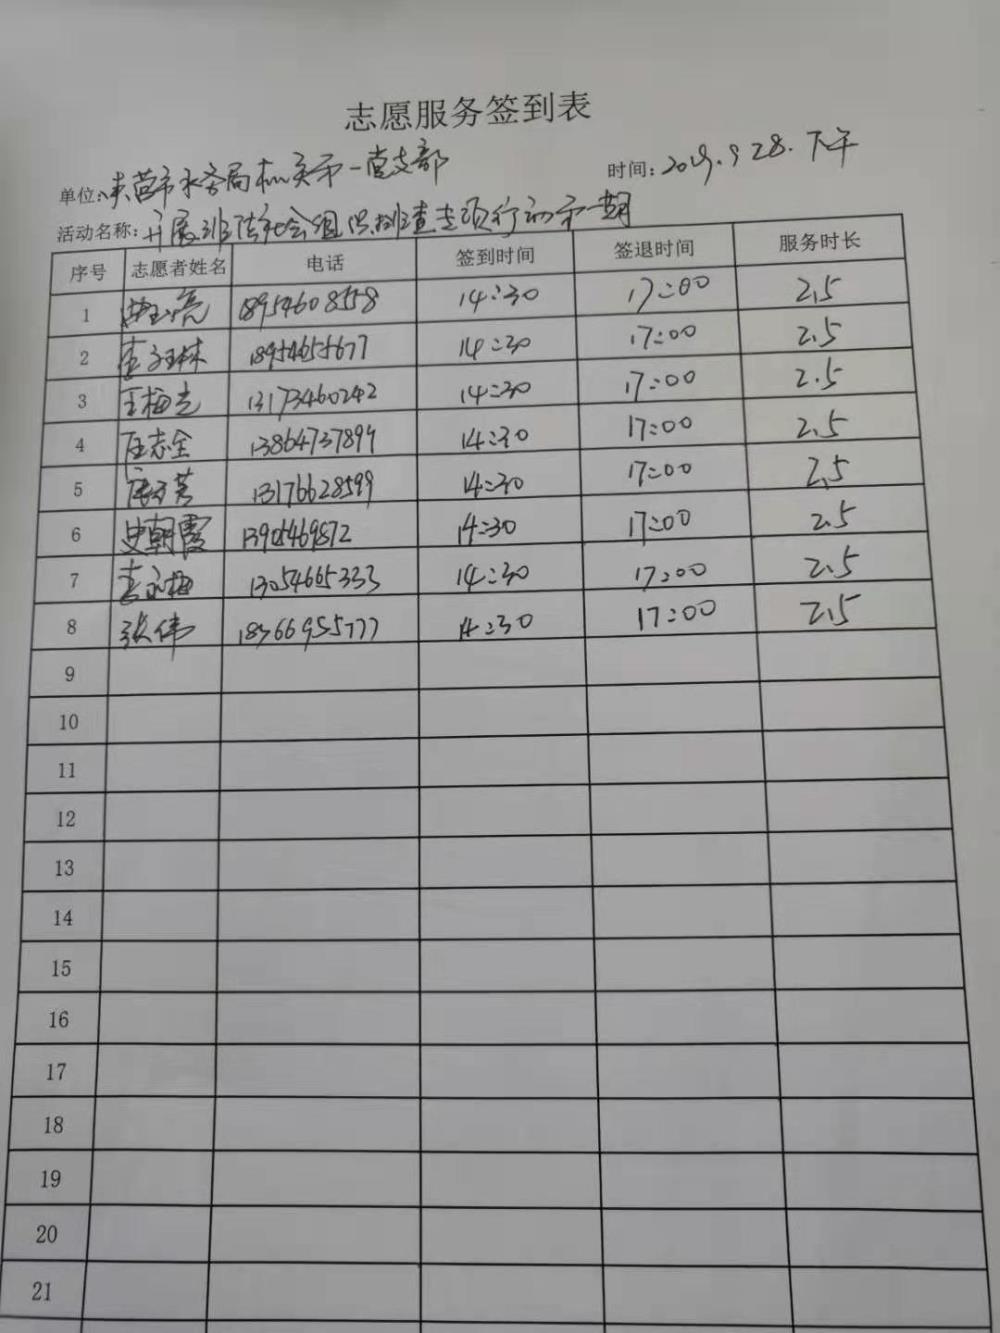 志愿服务签到表
单位:东营市水务局机关第一党支部 时间:2019.9.28.下午
活动名称:开展非法社会组织排查专项行动第一期
序号 志愿者姓名 电话 签到时间 签退时间 服务时长
1 亮 18954608558 14:30 17:00 2.5
2 李 林 18954655677 14:30 17:00 2.5
3 王梅 13173460242 14:30 17:00 2.5
4 志全 13864737899 14:30 17:00 2.5
5 13176628599 14:30 17:00 2.5
6 史朝霞 14:30 17:00 2.5
7 李 梅 13054665333 14:30 17:00 2.5
8 张伟 18366955777 14:30 17:00 2.5
9
10
11
12
13
14
15
16
17
18
19
20
21